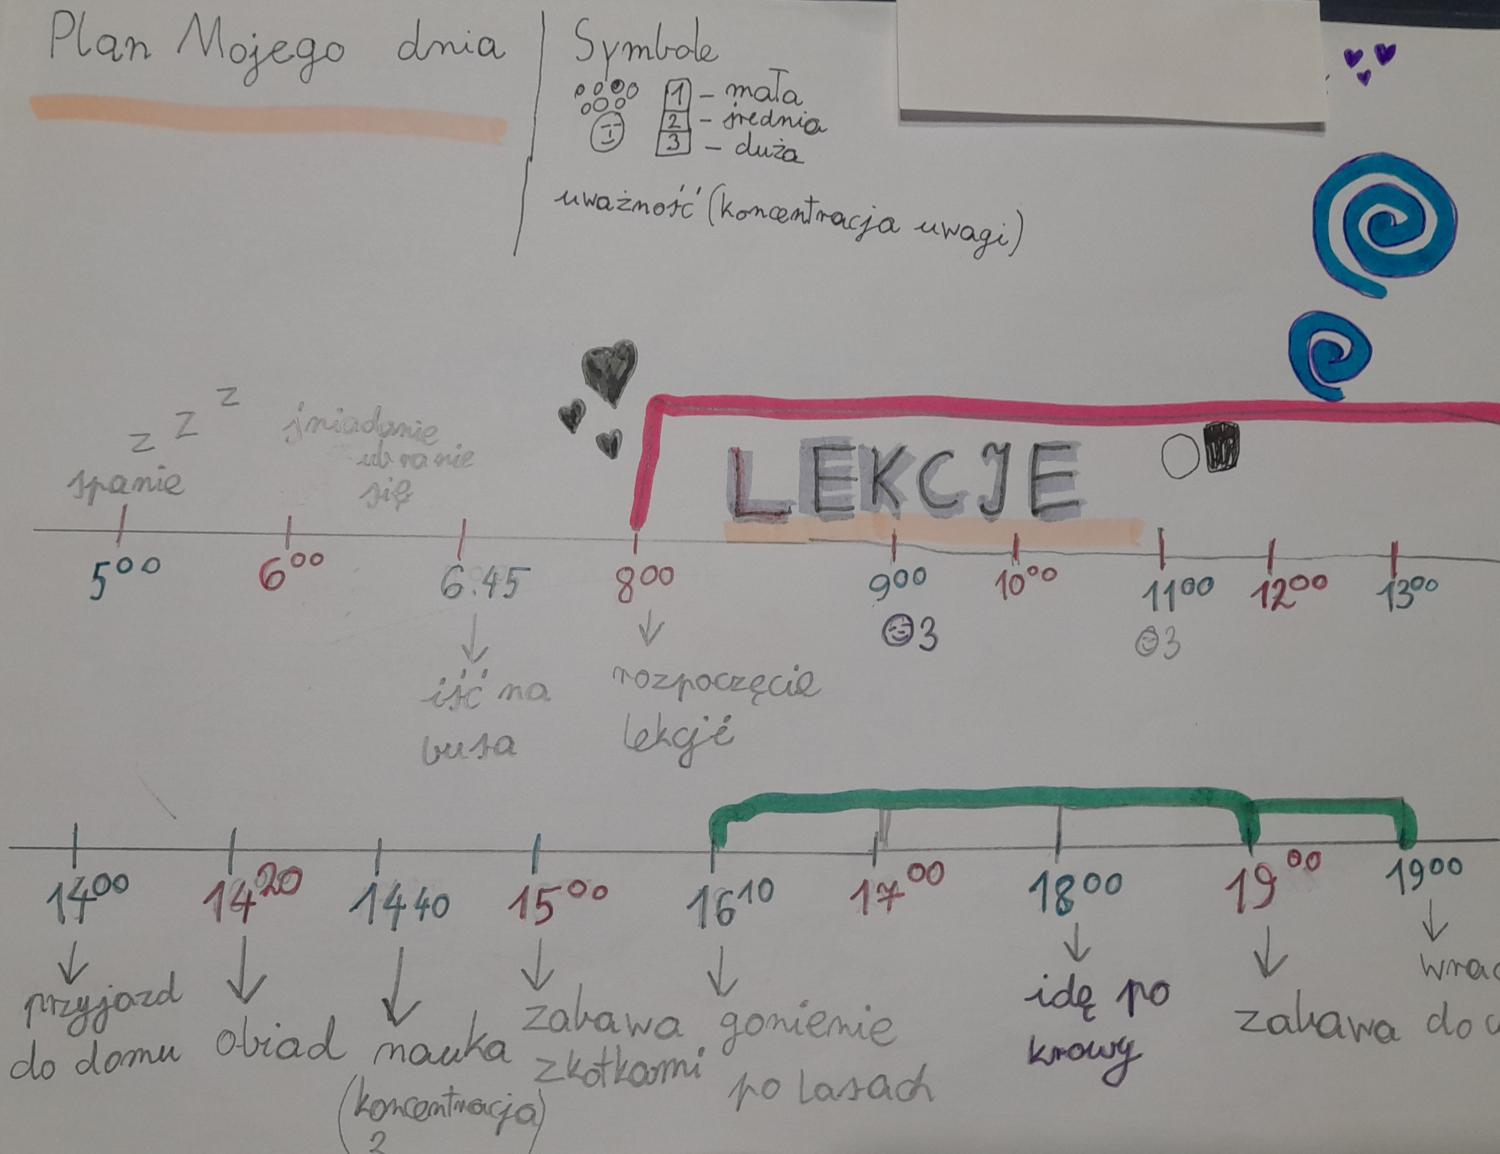 Plan Mojego dnia
Symbole
1 - mała
2 - średnia
3 - duża
uważność (koncentracja uwagi)
z z z
spanie
śniadanie
ubranie
się
LEKCJE
5⁰⁰ 6⁰⁰ 6.45 8⁰⁰ 9⁰⁰ 10⁰⁰ 11⁰⁰ 12⁰⁰ 13⁰⁰
3 3
iść na
busa
rozpoczęcie
lekcji
14⁰⁰ 14²⁰ 14 40 15⁰⁰ 16¹⁰ 17⁰⁰ 18⁰⁰ 19⁰⁰ 19⁰⁰
przyjazd
do domu
obiad
nauka
(koncentracja)
zabawa
z kotkami
gonienie
po lasach
idę po
krowy
zabawa
do